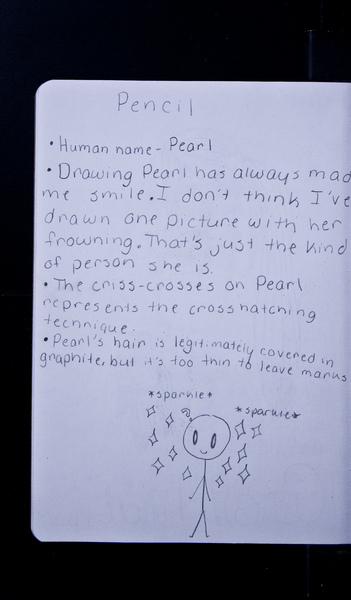 Pencil
• Human name - Pearl
• Drawing Pearl has always mad
me smile. I don't think I've
drawn one picture with her
frowning. That's just the kind
of person she is.
• The criss-crosses on Pearl
represents the crosshatching
technique.
• Pearl's hair is legitimately covered in
graphite, but it's too thin to leave marks
*sparkle*
*sparkle*